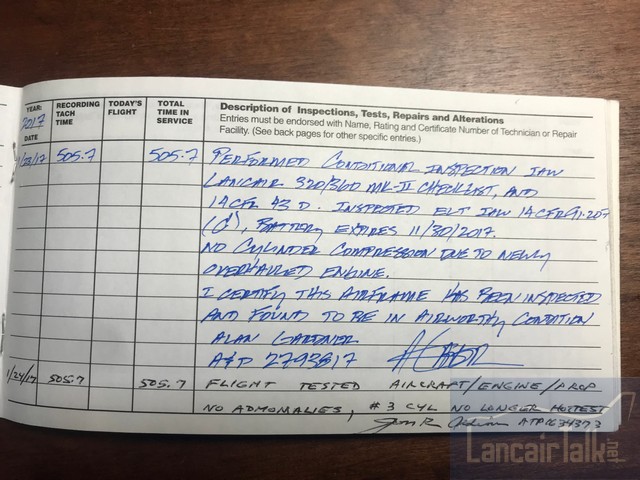 YEAR: RECORDING TODAY'S TOTAL Description of Inspections, Tests, Repairs and Alterations
2017 TACH FLIGHT TIME IN Entries must be endorsed with Name, Rating and Certificate Number of Technician or Repair
DATE TIME SERVICE Facility. (See back pages for other specific entries.)
505.7 505.7 PERFORMED CONDITIONAL INSPECTION IAW
LANCAIR 320/360 MK-II CHECKLIST, AND
14 CFR 43 D. INSPECTED ELT IAW 14CFR91.207
(d), BATTERY EXPIRES 11/30/2017.
NO CYLINDER COMPRESSION DUE TO NEWLY
OVERHAULED ENGINE.
I CERTIFY THIS AIRFRAME HAS BEEN INSPECTED
AND FOUND TO BE IN AIRWORTHY CONDITION
ALAN GARDNER
A&P 2793817
1/24/17 505.7 505.7 FLIGHT TESTED AIRCRAFT/ENGINE/PROP
NO ADMOMALIES, #3 CYL NO LONGER HOTTEST
ATP1634373
LancairTalk.net